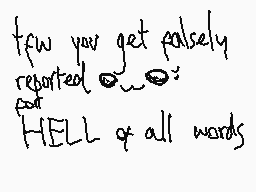 tfw you get falsely
reported
for
HELL of all words